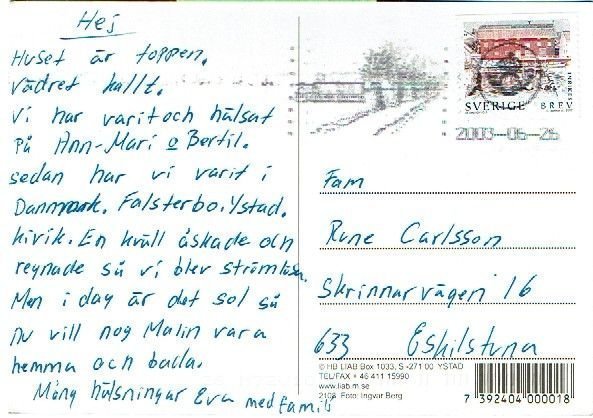 Hej
Huset är toppen.
Vädret kallt.
Vi har varit och hälsat
på Ann-Mari o Bertil.
sedan har vi varit i
Danmark. Falsterbo. Ystad.
Kivik. En kväll åskade och
reynade så vi blev strömlösa.
Men i day är det sol så
nu vill nog Malin vara
hemma och bada.
Mång hälsningar Eva med Familj
SVERIGE BREV
2003-06-26
Fam
Rune Carlsson
Skrinnarvägen 16
633 Eskilstuna
© HB LIAB Box 1033, S-271 00 YSTAD
TEL/FAX + 46 411 15990
www.liab.m.se
2108 Foto: Ingvar Berg
7 392404 000018